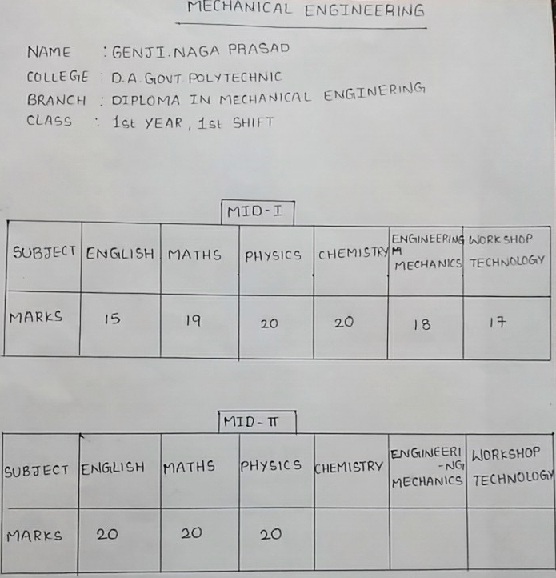 MECHANICAL ENGINEERING
NAME : GENJI.NAGA PRASAD
COLLEGE : D.A. GOVT POLYTECHNIC
BRANCH : DIPLOMA IN MECHANICAL ENGINERING
CLASS : 1st YEAR, 1st SHIFT
MID-I
SUBJECT ENGLISH MATHS PHYSICS CHEMISTRY ENGINEERING M MECHANICS WORKSHOP TECHNOLOGY
MARKS 15 19 20 20 18 17
MID-II
SUBJECT ENGLISH MATHS PHYSICS CHEMISTRY ENGINEERI-NG MECHANICS WORKSHOP TECHNOLOGY
MARKS 20 20 20